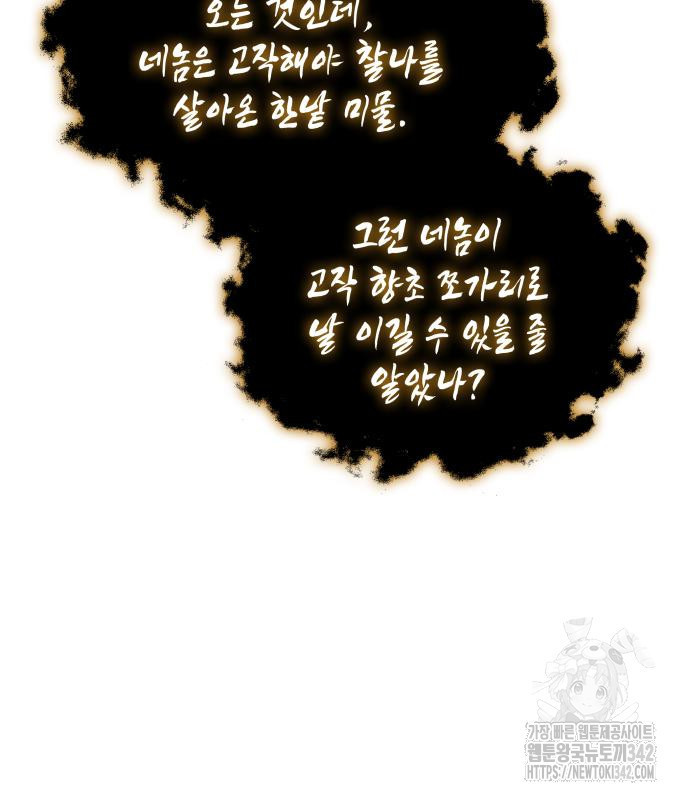 오는 것인데,
네놈은 고작해야 찰나를
살아온 한낱 미물.
그런 네놈이
고작 향초 쪼가리로
날 이길 수 있을 줄
알았나?
가장 빠른 웹툰제공사이트
웹툰왕국뉴토끼342
HTTPS://NEWTOKI342.COM